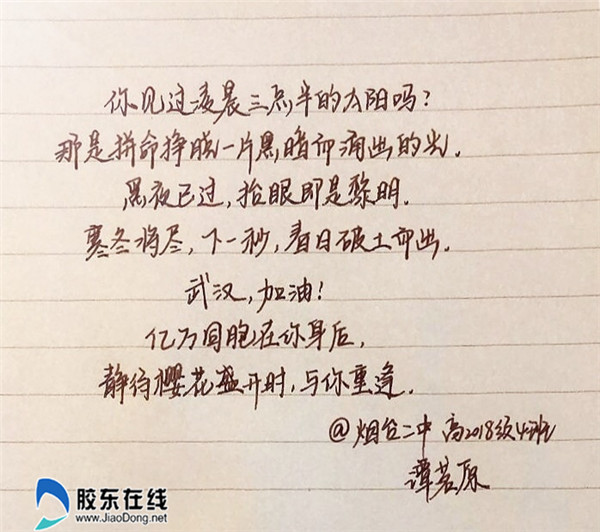 你见过凌晨三点半的太阳吗？
那是拼命挣脱一片黑暗而涌出的光。
黑夜已过，抬眼即是黎明。
寒冬将尽，下一秒，春日破土而出。
武汉，加油！
亿万同胞在你身后，
静待樱花盛开时，与你重逢。
@烟台二中 高2018级4班
谭茗原
胶东在线
www.JiaoDong.net